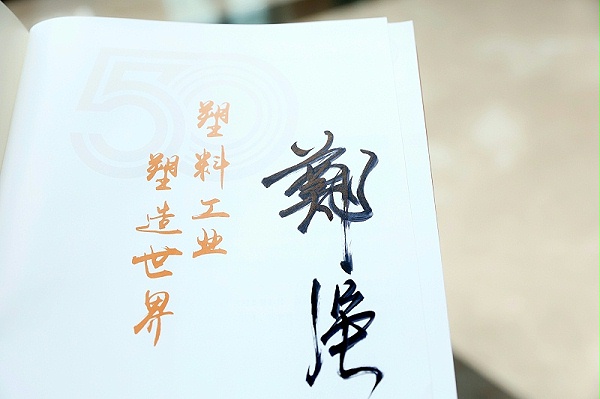 50
鄭
塑料工业
塑造世界